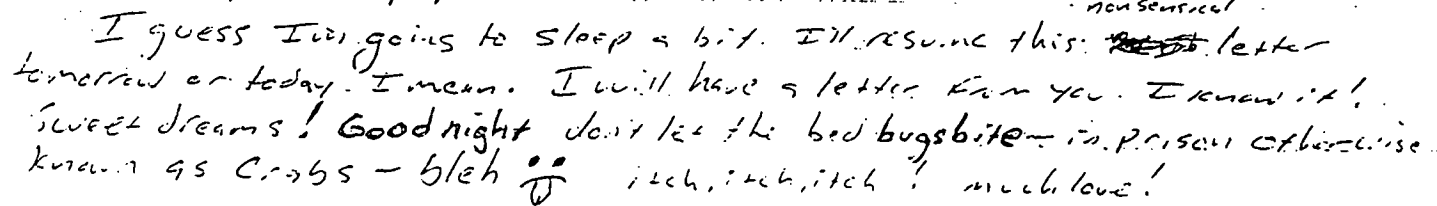 nonsensical
I guess I'm going to sleep a bit. I'll resume this letter
tomorrow or today. I mean. I will have a letter from you. I know it!
Sweet dreams! Good night don't let the bed bugs bite - in prison otherwise
known as Crabs - bleh itch, itch, itch! much love!